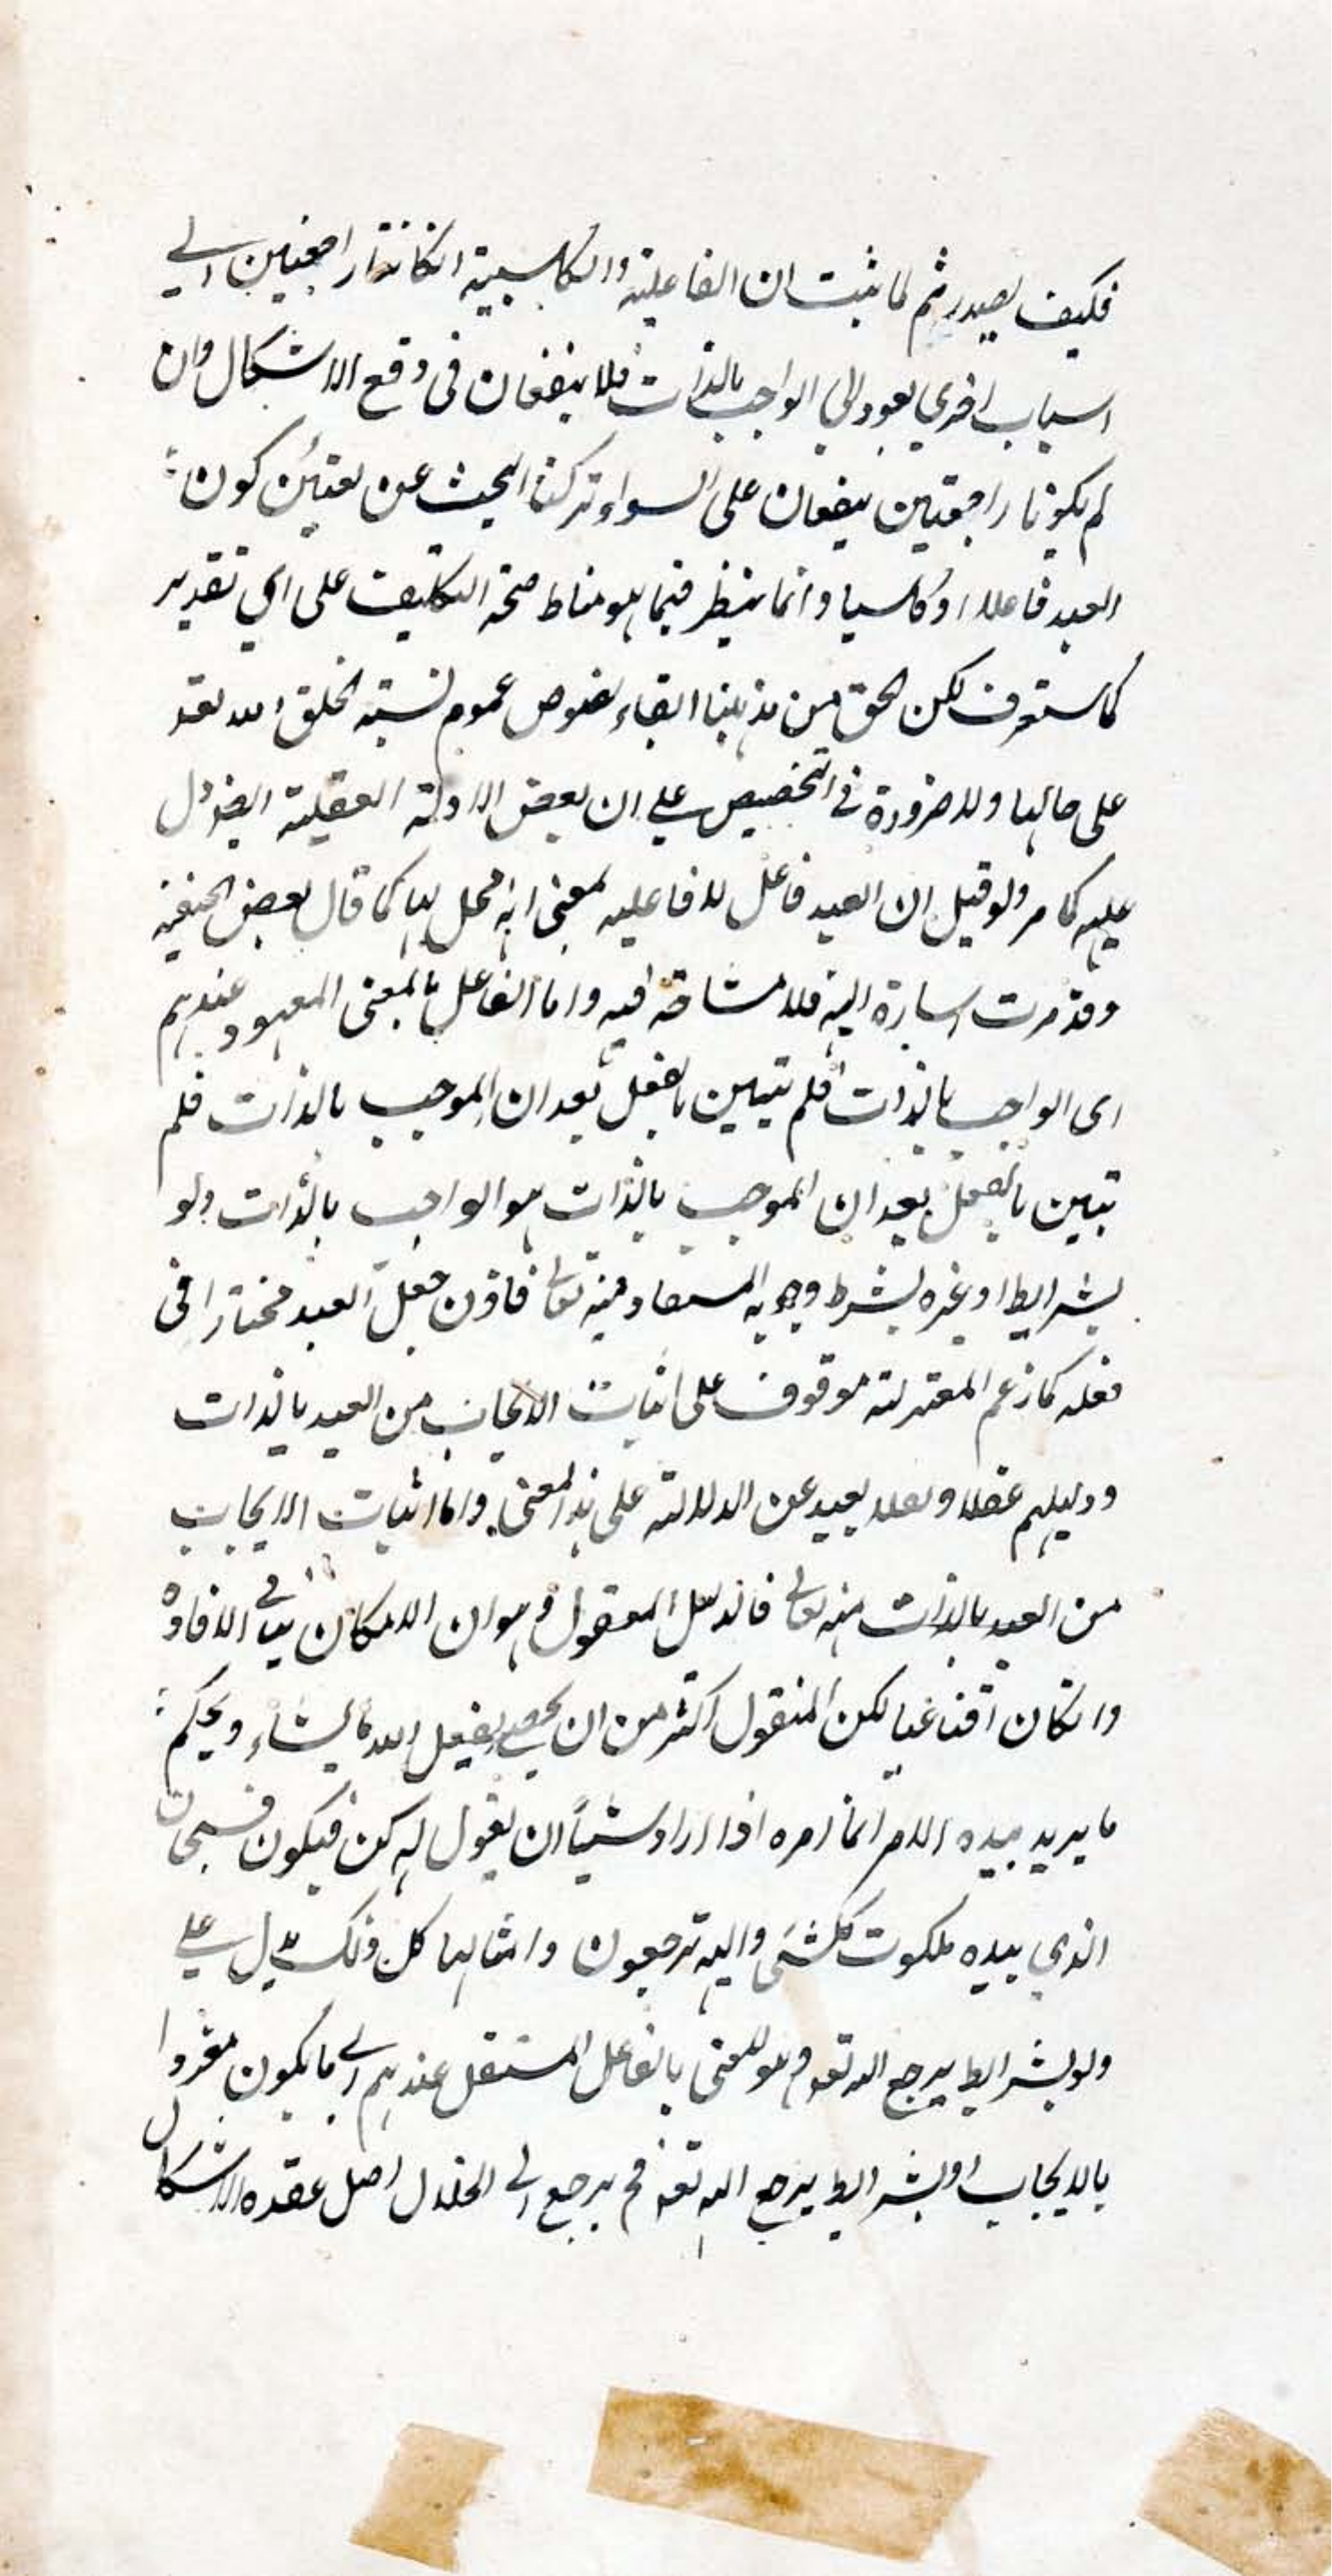 فكيف يصدر ثم لما ثبت ان الفاعلية والكاسبية انكانتا راجعتين الى
اسباب اخرى يعود الى الواجب بالذات فلا ينفعان فى دفع الاشكال وان
لم يكونا راجعتين ينفعان على السواء تركنا البحث عن تعيين كون
العبد فاعلا او كاسبا وانما ننظر فيما هو مناط صحة التكليف على اى تقدير
كما ستعرف لكن الحق من مذهبنا ابقاء نصوص عموم نسبة الخلق الله تعه
على حالها ولا ضرورة فى التخصيص على ان بعض الادلة العقلية ايضا دل
عليه كما مر ولو قيل ان العبد فاعل للفاعليه بمعنى انه محل لها كما قال بعض الحنفية
وقد مرت اسارة اليه فلا مشاحة فيه واما الفاعل بالمعنى المعهود عندهم
اى الواجب بالذات فلم تبين بالفعل بعد ان الموجب بالذات فلم
تبين بالفعل بعد ان الموجب بالذات هو الواجب بالذات ولو
بشرايط او غيره بشرط وجوبه المستفاد منه تعالى فاذن جعل العبد مختارا فى
فعله كما زعم المعتزلة موقوف على اثبات الايجاب من العبد بالذات
ودليلهم عقلا ونقلا بعيد عن الدلالة على هذا المعنى واما اثبات الايجاب
من العبد بالذات منه تعالى فالدليل المعقول وهو ان الامكان ينافى الافادة
وانكان اقناعيا لكن المنقول اكثر من ان يحصى يفعل الله ما يشاء ويحكم
ما يريد بيده الامر انما امره اذا اراد شيئا ان يقول له كن فيكون فسبحان
الذي بيده ملكوت كلشئ واليه ترجعون وامثالها كل ذلك يدل على
ولو بشرايط يرجع اليه تعه وهو المعنى بالفاعل المستقل عندهم اى ما يكون مفردا
بالايجاب او بشرايط يرجع اليه تعه فح يرجع الى انحلال اصل عقده الاشكال